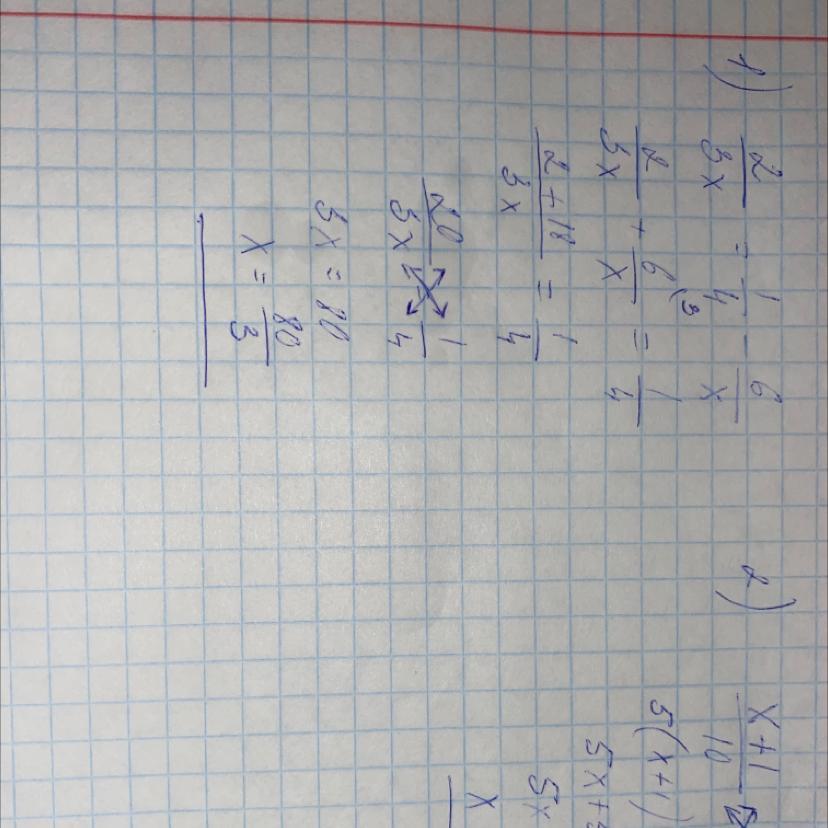 1)
2/3x = 1/4 - 6/x
2/3x + 6(3/x = 1/4
2+18/3x = 1/4
20/3x 1/4
3x = 80
x = 80/3
2)
x+1/10
5(x+1)
5x+
5x
x